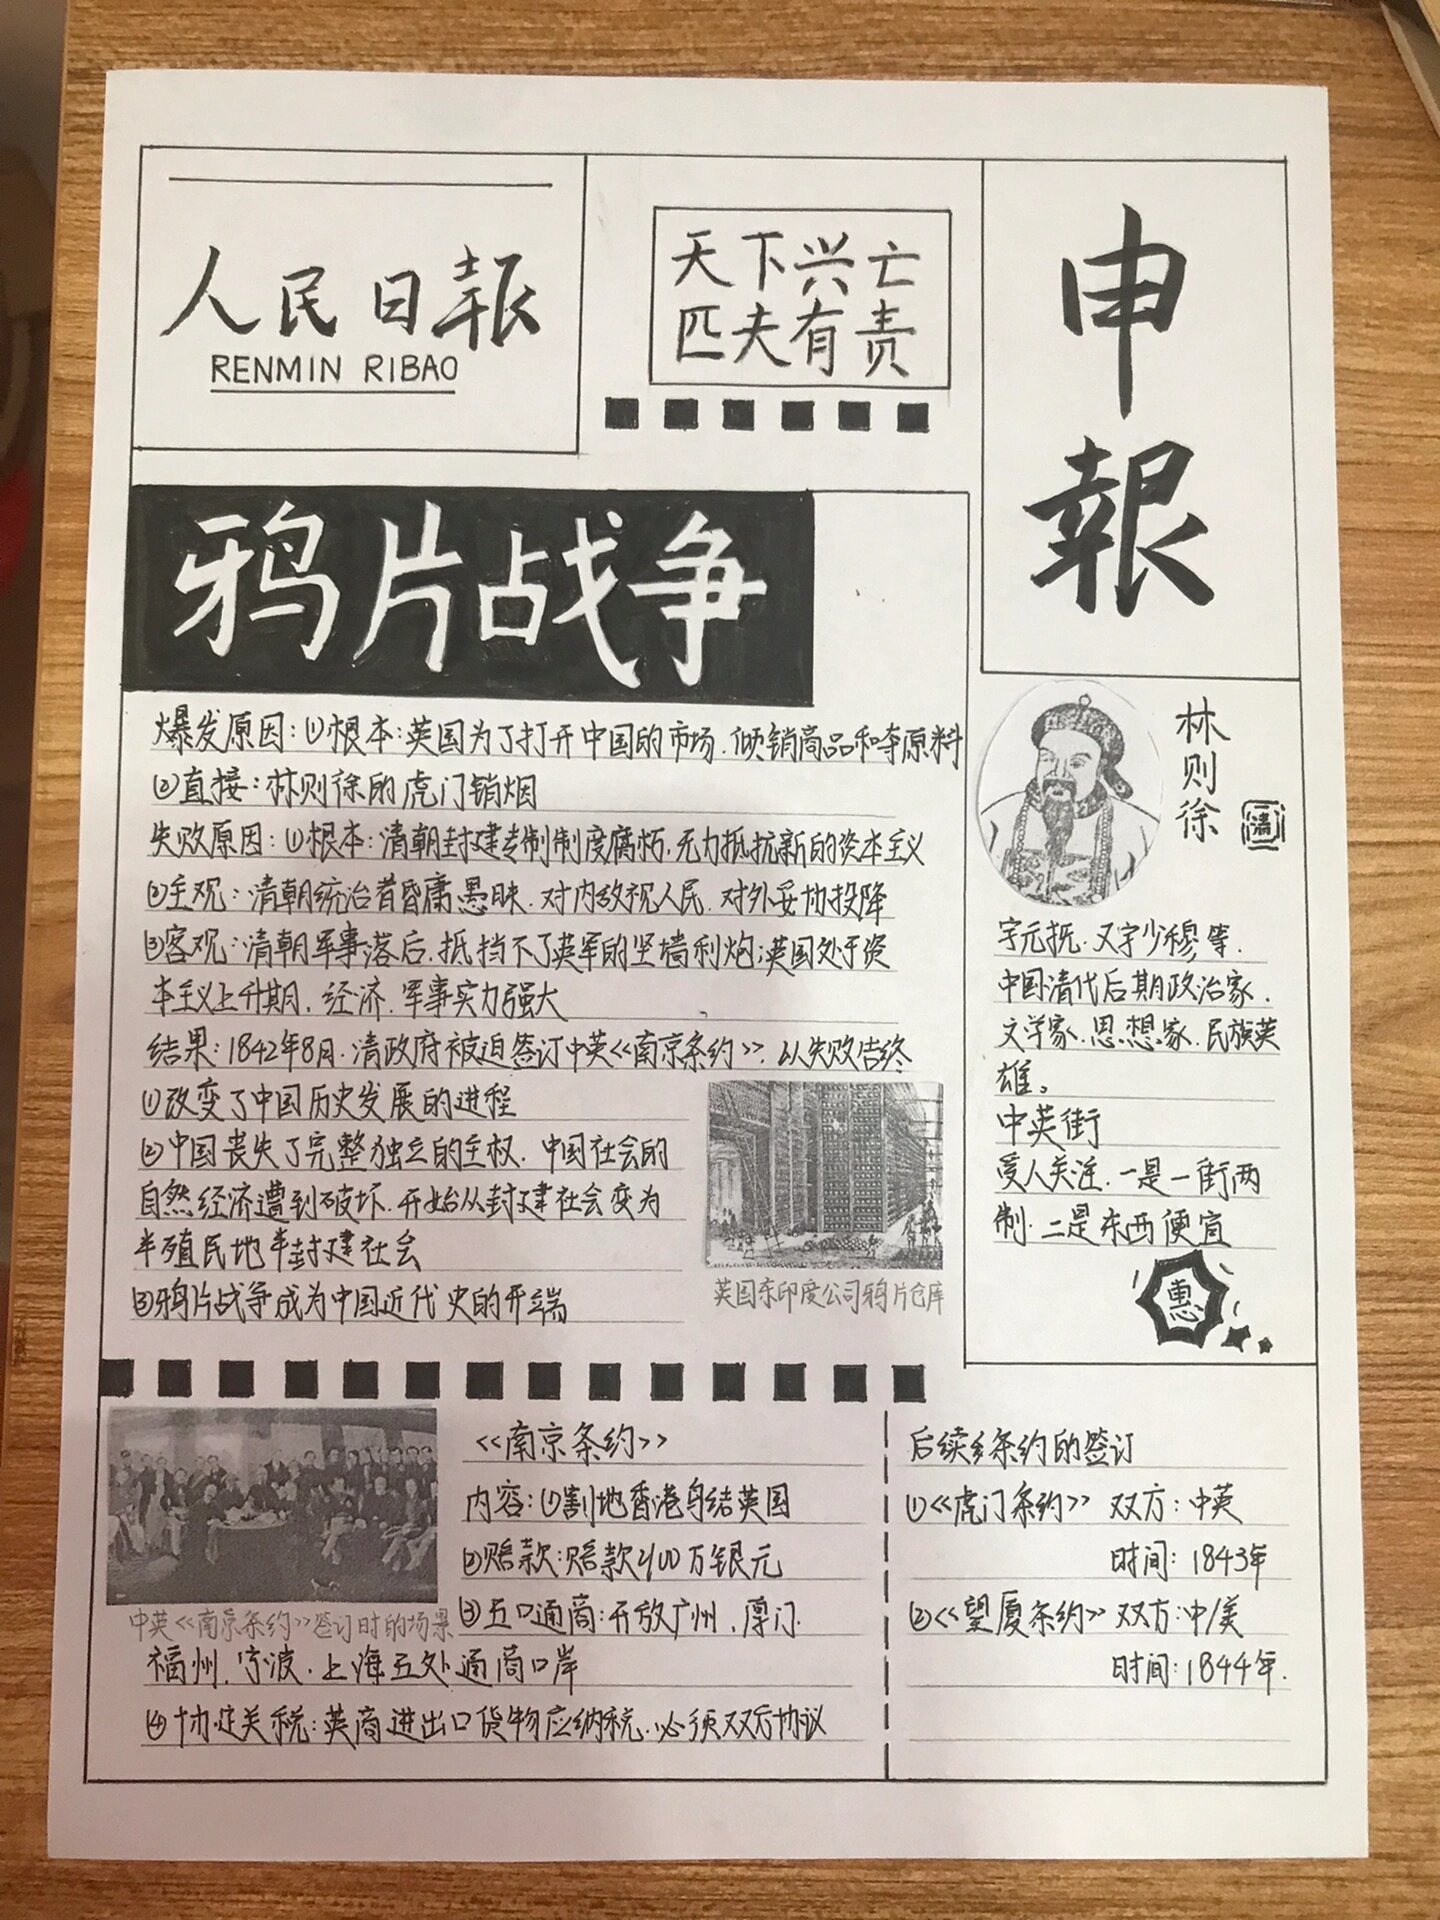 人民日报
RENMIN RIBAO
天下兴亡
匹夫有责
申
報
鸦片战争
爆发原因:①根本:英国为了打开中国的市场,倾销商品和夺原料
②直接:林则徐的虎门销烟
失败原因:①根本:清朝封建专制制度腐朽,无力抵抗新的资本主义
②主观:清朝统治者昏庸愚昧,对内敌视人民,对外妥协投降
③客观:清朝军事落后,抵挡不了英军的坚墙利炮;英国处于资
本主义上升期,经济,军事实力强大
结果:1842年8月,清政府被迫签订中英《南京条约》,以失败告终
①改变了中国历史发展的进程
②中国丧失了完整独立的主权,中国社会的
自然经济遭到破坏,开始从封建社会变为
半殖民地半封建社会
③鸦片战争成为中国近代史的开端
英国东印度公司鸦片仓库
林则徐
清
字元抚,又字少穆等,
中国清代后期政治家,
文学家,思想家,民族英
雄。
中英街
受人关注,一是一街两
制,二是东西便宜
惠
中英《南京条约》签订时的场景
《南京条约》
内容:①割地香港岛给英国
②赔款:赔款2100万银元
③五口通商:开放广州,厚门,
福州,宁波,上海五处通商口岸
④协定关税:英商进出口货物应纳税,必须双方协议
后续条约的签订
①《虎门条约》 双方:中英
时间:1843年
②《望厦条约》 双方:中/美
时间:1844年.